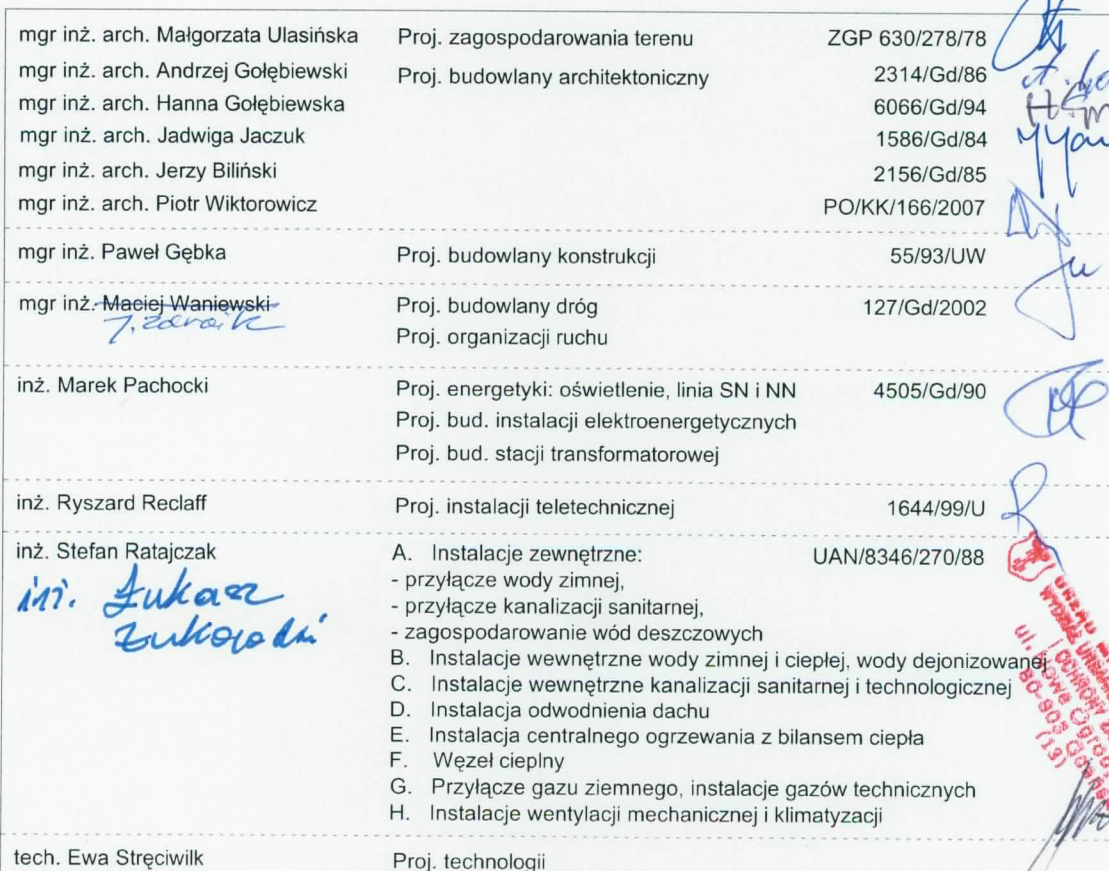 mgr inż. arch. Małgorzata Ulasińska Proj. zagospodarowania terenu ZGP 630/278/78
mgr inż. arch. Andrzej Gołębiewski Proj. budowlany architektoniczny 2314/Gd/86
mgr inż. arch. Hanna Gołębiewska 6066/Gd/94
mgr inż. arch. Jadwiga Jaczuk 1586/Gd/84
mgr inż. arch. Jerzy Biliński 2156/Gd/85
mgr inż. arch. Piotr Wiktorowicz PO/KK/166/2007
mgr inż. Paweł Gębka Proj. budowlany konstrukcji 55/93/UW
mgr inż. Maciej Waniewski Proj. budowlany dróg 127/Gd/2002
Proj. organizacji ruchu
inż. Marek Pachocki Proj. energetyki: oświetlenie, linia SN i NN 4505/Gd/90
Proj. bud. instalacji elektroenergetycznych
Proj. bud. stacji transformatorowej
inż. Ryszard Reclaff Proj. instalacji teletechnicznej 1644/99/U
inż. Stefan Ratajczak A. Instalacje zewnętrzne: UAN/8346/270/88
inż. Łukasz
- przyłącze wody zimnej,
- przyłącze kanalizacji sanitarnej,
- zagospodarowanie wód deszczowych
B. Instalacje wewnętrzne wody zimnej i ciepłej, wody dejonizowanej
C. Instalacje wewnętrzne kanalizacji sanitarnej i technologicznej
D. Instalacja odwodnienia dachu
E. Instalacja centralnego ogrzewania z bilansem ciepła
F. Węzeł cieplny
G. Przyłącze gazu ziemnego, instalacje gazów technicznych
H. Instalacje wentylacji mechanicznej i klimatyzacji
tech. Ewa Stręciwilk Proj. technologii
ul. Nowe
80-803
(13)